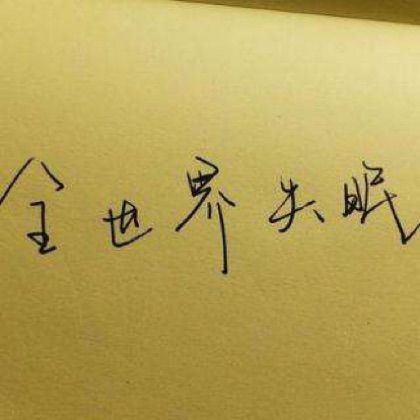 全世界失眠